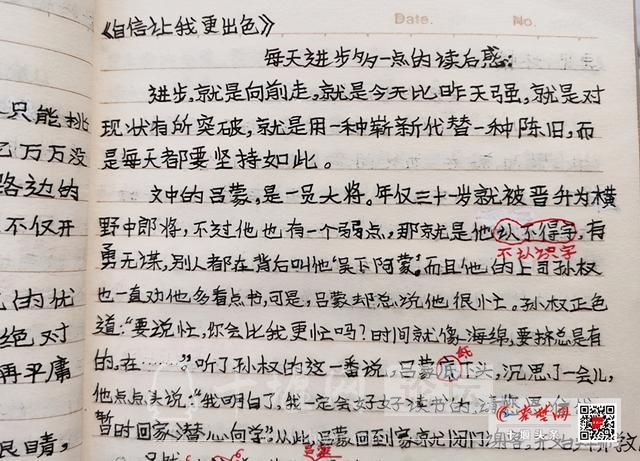 《自信让我更出色》
Date.
No.
每天进步多一点的读后感：
只能挑
万万没
路边的
不仅开
的优
绝对
再平庸
眼睛，
进步，就是向前走，就是今天比昨天强，就是对
现状有所突破，就是用一种崭新代替一种陈旧，而
是每天都要坚持如此。
文中的吕蒙，是一员大将。年仅三十岁就被晋升为横
野中郎将，不过他也有一个弱点，那就是他认不得字，有
不认识字
勇无谋，别人都在背后叫他"吴下阿蒙"。而且他的上司孙权
也一直劝他多看点书，可是，吕蒙却总说他很忙。孙权正色
道："要说忙，你会比我更忙吗？时间就像海绵，要挤总是有
的，在……"。听了孙权的这一番说，吕蒙底下头，沉思了一会儿，
低
他点点头说："我明白了，我一定会好好读书的，请
暂时回家潜心向学"。从此，吕蒙回到家就闭门
吕蒙
楚网
十堰头条